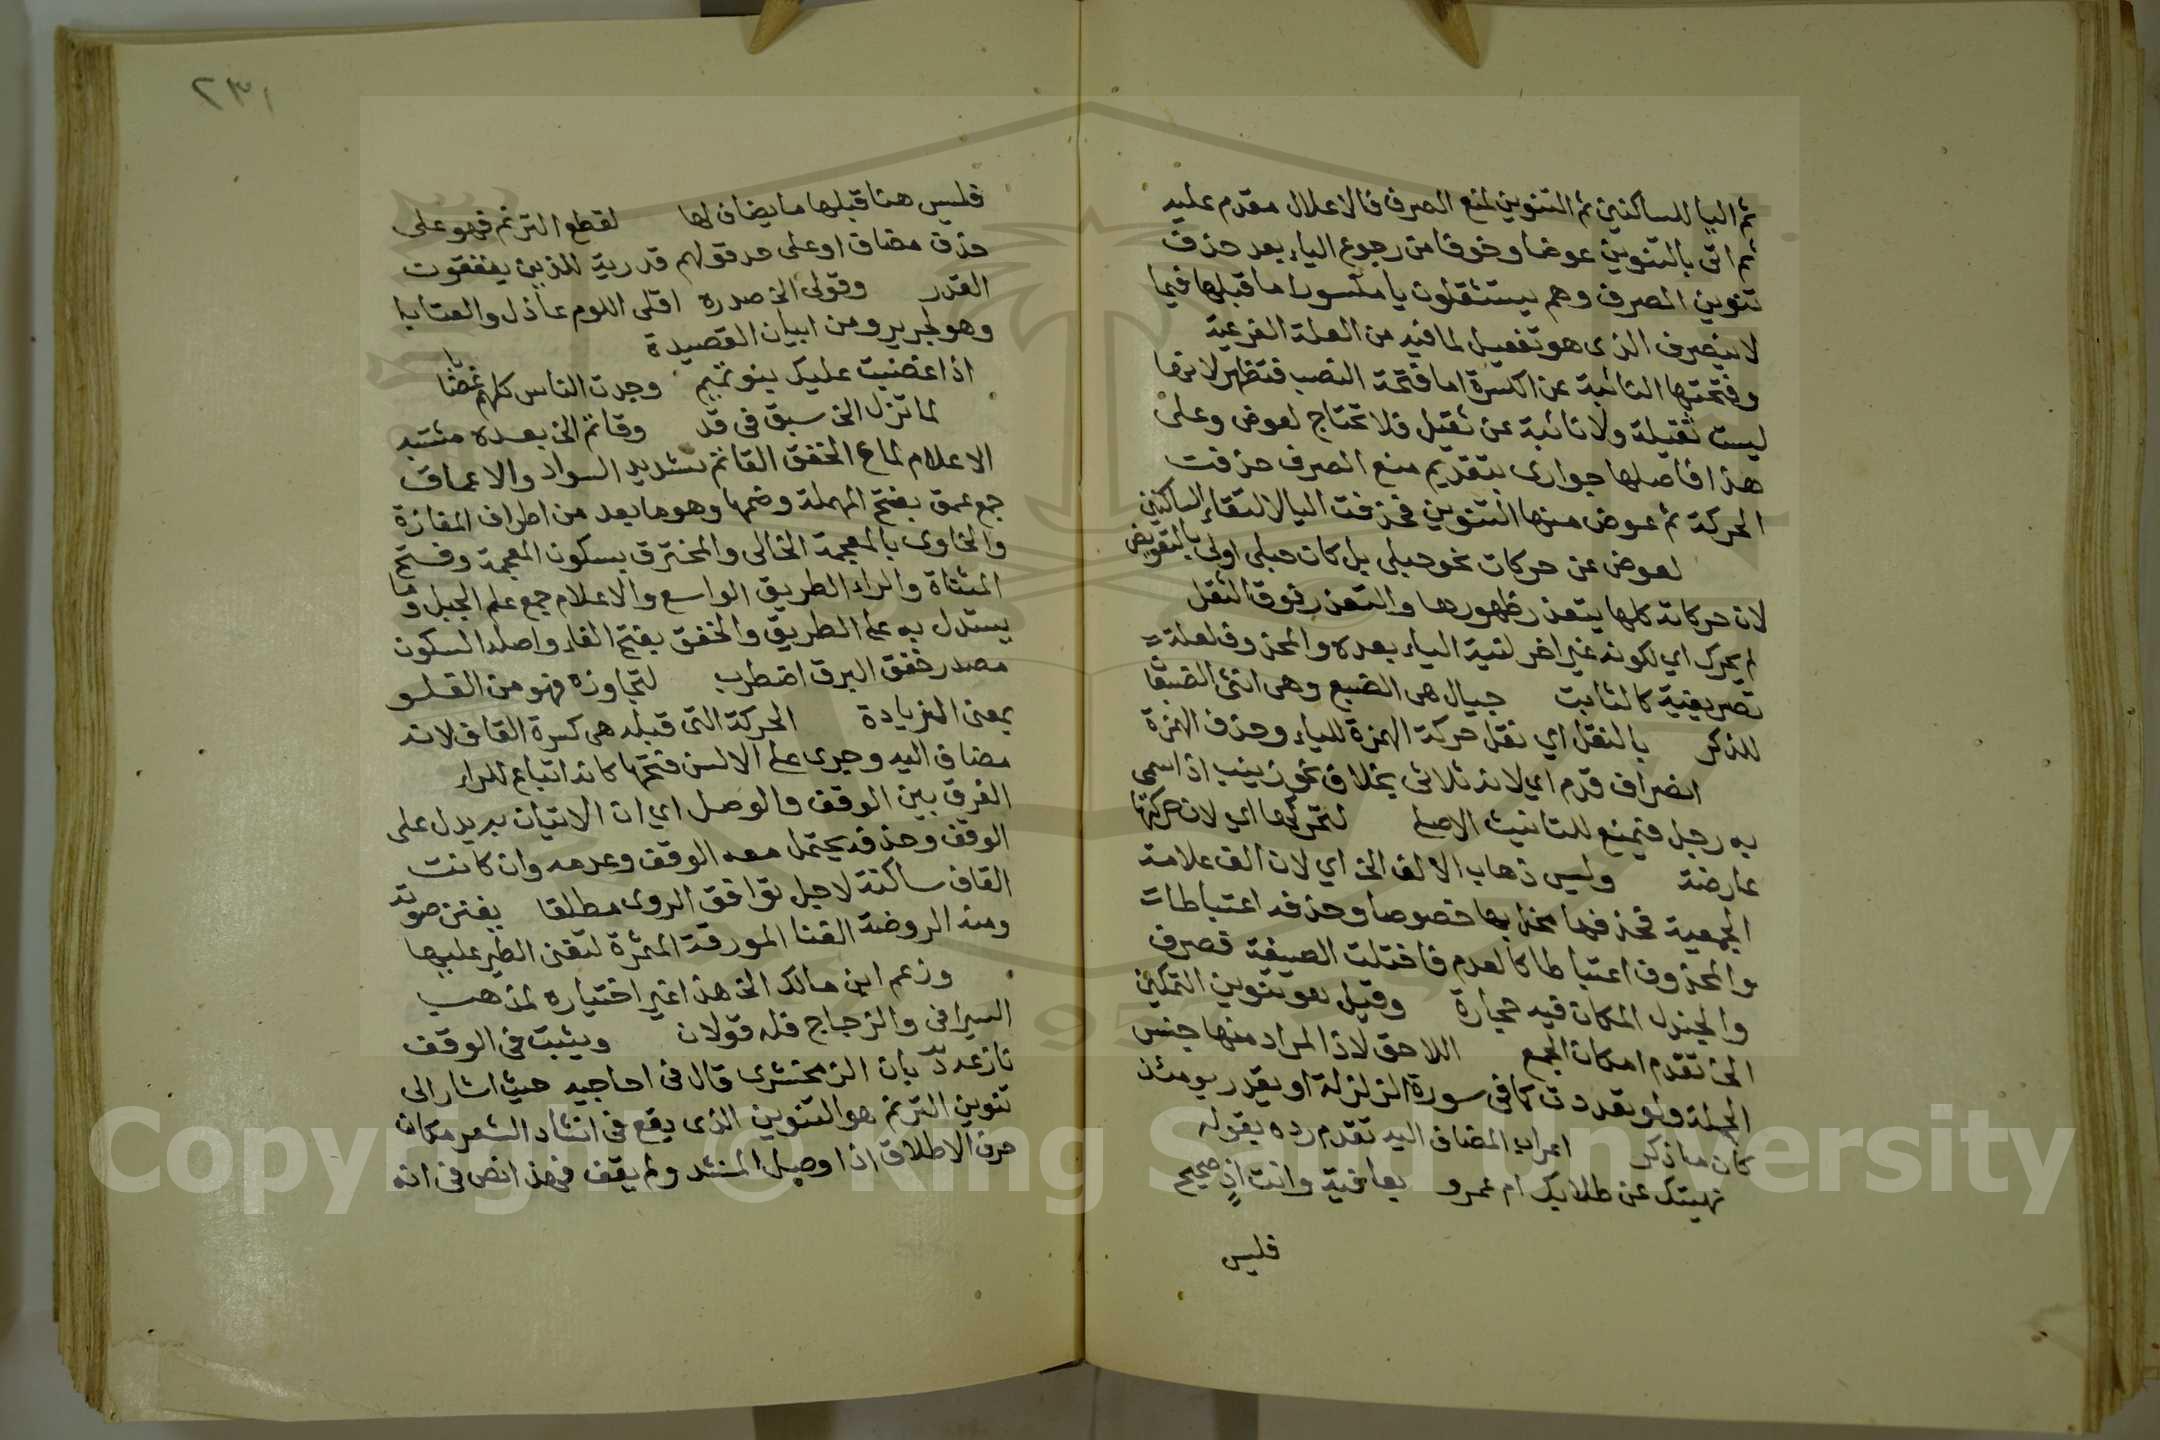 ثم اليا للساكنين ثم التنوين لمنع الصرف فالاعلال مقدم عليه
ثم اتى بالتنوين عوضا وخوفا من رجوع الياء بعد حذف
تنوين الصرف وهم يستثقلون يا مكسورا ما قبلها فيما
لا ينصرف الذى هو ثقيل لما فيه من العلة الفرعية
وفتحتها النائبة عن الكسرة اما فتحة النصب فتظهر لانها
ليست ثقيلة ولا نائبة عن ثقيل فلا تحتاج لعوض وعلى
هذا فاصلها جوارى بتقديم منع الصرف حذفت
الحركة ثم عوض منها التنوين فحذفت اليا لالتقاء الساكنين
لعوض عن حركات نحو حبلى بل كان حبلى اولى بالتعويض
لان حركاته كلها يتعذر ظهورها والتعذر فوق الثقل
لم يحرك اي لكونه غير اخر لنية الياء بعده والمحذوف لعلة
تصريفية كالثابت جيال هى الضبع وهى انثى الضبعا
للذكر بالنقل اي نقل حركة الهمزة للياء وحذف الهمزة
انصراف قدم اي لانه ثلاثى بخلاف نحو زينب اذا سمى
به رجل فيمنع للتانيث الاصلى لتحركها اي لان حركتها
عارضة وليس ذهاب الالف الخ اي لان الف علامة
الجمعية فحذفها مخل بها خصوصا وحذفه اعتباطا
والمحذوف اعتباطا كالعدم فاختلت الصيغة فصرف
والجندل المكان فيه حجارة وقيل هو تنوين التمكين
الخ تقدم امكان الجمع اللاحق لاذ المراد منها جنس
الجملة ولو تعددت كما فى سورة الزلزلة او يقدر يومئذ
كان ما ذكر اعراب المضاف اليه تقدم رده بقوله
نهيتك عن طلابك ام عمرو بعافية وانت اذ صحيح
فليس
٢٣١
فليس هنا قبلها ما يضاف لها لقطع الترنم فهو على
حذف مضاف او على حد قولهم قدرية للذين ينفون
القدر وقولى الخ صدره اقلى اللوم عاذل والعتابا
وهو لجرير ومن ابيات القصيدة
اذا غضبت عليك بنو تميم وجدت الناس كلهم غضابا
لما تزل الخ سبق فى قد وقاتم الخ بعده مشتبه
الاعلام لماع الخفق القاتم شديد السواد والاعماق
جمع عمق بفتح المهملة وضمها وهو ما بعد من اطراف المفازة
والخاوى بالمعجمة الخالى والمخترق بسكون المعجمة وفتح
المثناة والراء الطريق الواسع والاعلام جمع علم الجبل وما
يستدل به على الطريق والخفق بفتح الفاء واصله السكون
مصدر خفق البرق اضطرب لتجاوزه فهو من الغلو
بمعنى الزيادة الحركة التى قبله هى كسرة القاف لانه
مضاف اليه وجرى على الالسن فتحها كانه اتباع للراء
الفرق بين الوقف والوصل اي ان الاتيان به يدل على
الوقف وحذفه يحتمل معه الوقف وعدمه وان كانت
القاف ساكنة لاجل توافق الروى مطلقا يغنن صوته
ومنه الروضة الغنا المورقة المثمرة لتغنى الطير عليها
وزعم ابن مالك الخ هذا غير اختياره لمذهب
السيرافى والزجاج فله قولان ويثبت فى الوقف
نازعه بان الزمخشرى قال فى احاجيه حيث اشار الى
تنوين الترنم هو التنوين الذى يقع فى انشاد الشعر مكان
حرف الاطلاق اذا وصل المنشد ولم يقف فهذا نص فى انه
Copyright © King Saud University